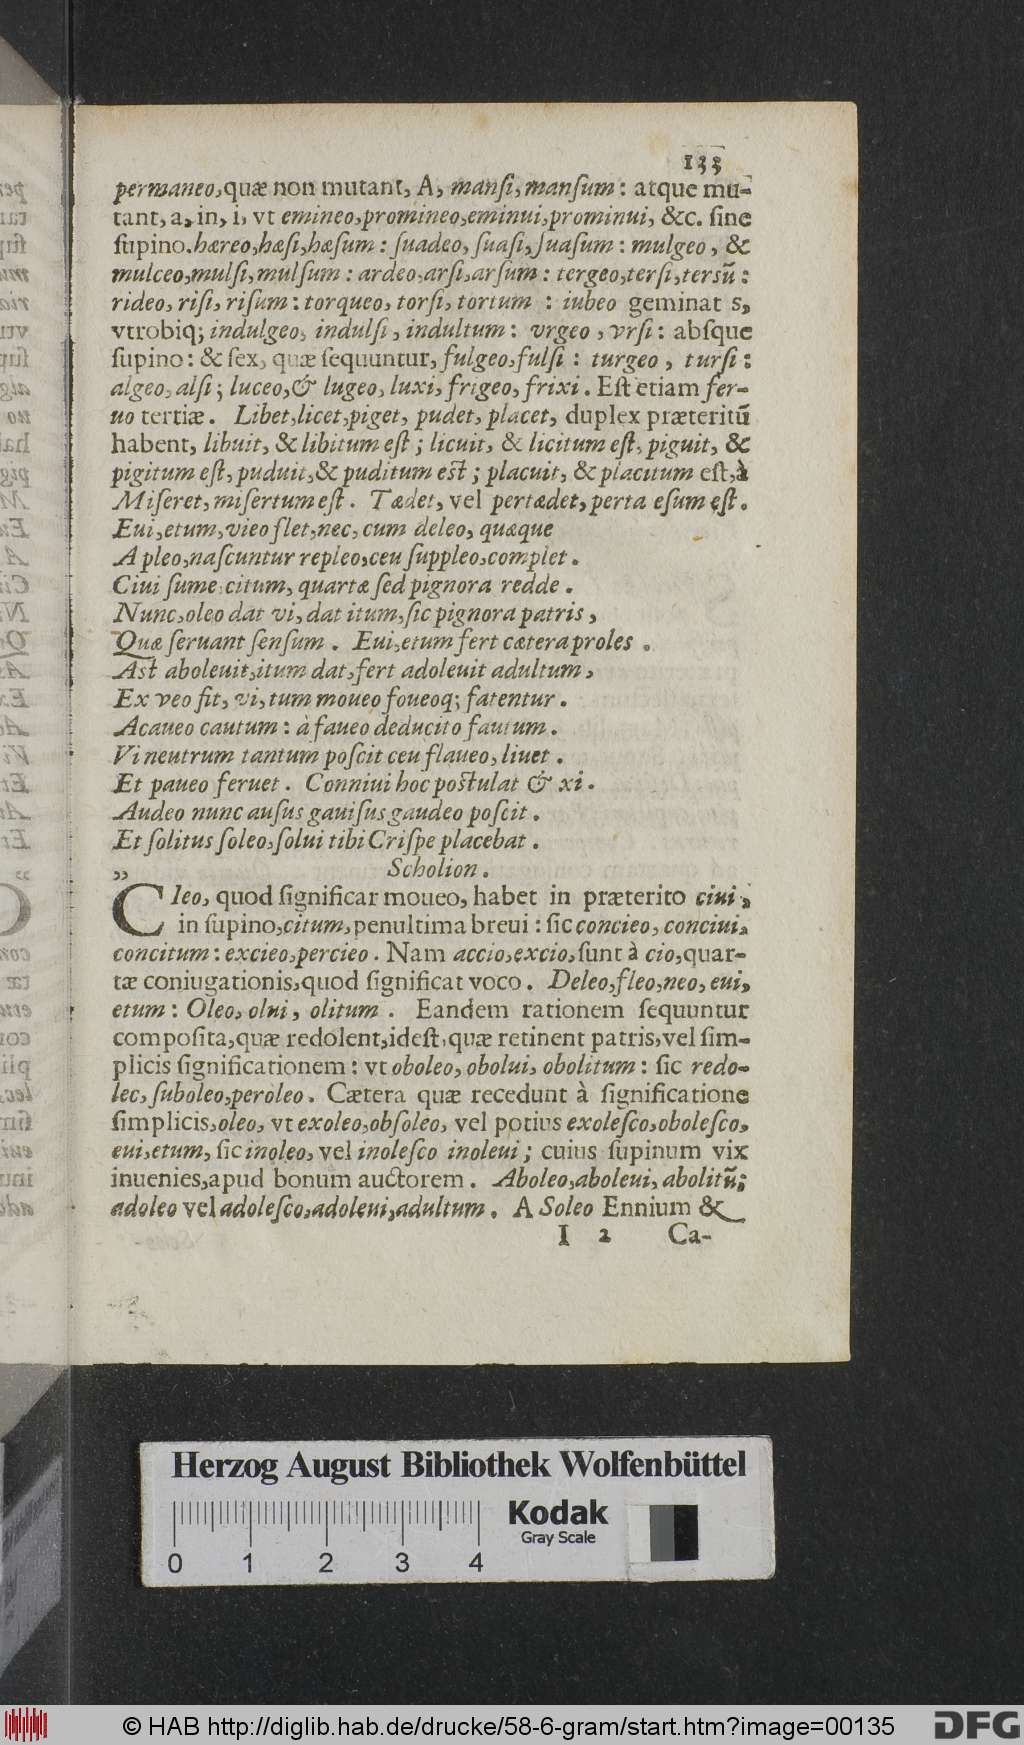 133
permaneo, quæ non mutant, A, manſi, manſum: atque mu-
tant, a, in, i, vt emineo, promineo, eminui, prominui, &c. ſine
ſupino. hæreo, hæſi, hæſum: ſuadeo, ſuaſi, ſuaſum: mulgeo, &
mulceo, mulſi, mulſum: ardeo, arſi, arſum: tergeo, terſi, terſũ:
rideo, riſi, riſum: torqueo, torſi, tortum: iubeo geminat s,
vtrobiq; indulgeo, indulſi, indultum: vrgeo, vrſi: abſque
ſupino: & ſex, quæ ſequuntur, fulgeo, fulſi: turgeo, turſi:
algeo, alſi; luceo, & lugeo, luxi, frigeo, frixi. Eſt etiam fer-
uo tertiæ. Libet, licet, piget, pudet, placet, duplex præteritũ
habent, libuit, & libitum eſt; licuit, & licitum eſt, piguit, &
pigitum eſt, puduit, & puditum eſt; placuit, & placitum eſt, à
Miſeret, miſertum eſt. Tædet, vel pertædet, perta eſum eſt.
Eui, etum, vieo flet, nec, cum deleo, quæque
A pleo, naſcuntur repleo, ceu ſuppleo, complet.
Ciui ſume citum, quartæ ſed pignora redde.
Nunc, oleo dat vi, dat itum, ſic pignora patris,
Quæ ſeruant ſenſum. Eui, etum fert cætera proles.
Aſt aboleuit, itum dat, fert adoleuit adultum,
Ex veo fit, vi, tum moueo foueoq; fatentur.
A caueo cautum: à faueo deducito fautum.
Vi neutrum tantum poſcit ceu flaueo, liuet.
Et paueo feruet. Conniui hoc poſtulat & xi.
Audeo nunc auſus gauiſus gaudeo poſcit.
Et ſolitus ſoleo, ſolui tibi Criſpe placebat.
„ Scholion.
Cleo, quod ſignificar moueo, habet in præterito ciui,
in ſupino, citum, penultima breui: ſic concieo, conciui,
concitum: excieo, percieo. Nam accio, excio, ſunt à cio, quar-
tæ coniugationis, quod ſignificat voco. Deleo, fleo, neo, eui,
etum: Oleo, olui, olitum. Eandem rationem ſequuntur
compoſita, quæ redolent, ideſt, quæ retinent patris, vel ſim-
plicis ſignificationem: vt oboleo, obolui, obolitum: ſic redo-
leo, ſuboleo, peroleo. Cætera quæ recedunt à ſignificatione
ſimplicis, oleo, vt exoleo, obſoleo, vel potius exoleſco, oboleſco,
eui, etum, ſic inoleo, vel inoleſco inoleui; cuius ſupinum vix
inuenies, apud bonum auctorem. Aboleo, aboleui, abolitũ;
adoleo vel adoleſco, adoleui, adultum. A Soleo Ennium &
I 2 Ca-
Herzog August Bibliothek Wolfenbüttel
Kodak
Gray Scale
0 1 2 3 4
© HAB http://diglib.hab.de/drucke/58-6-gram/start.htm?image=00135
DFG